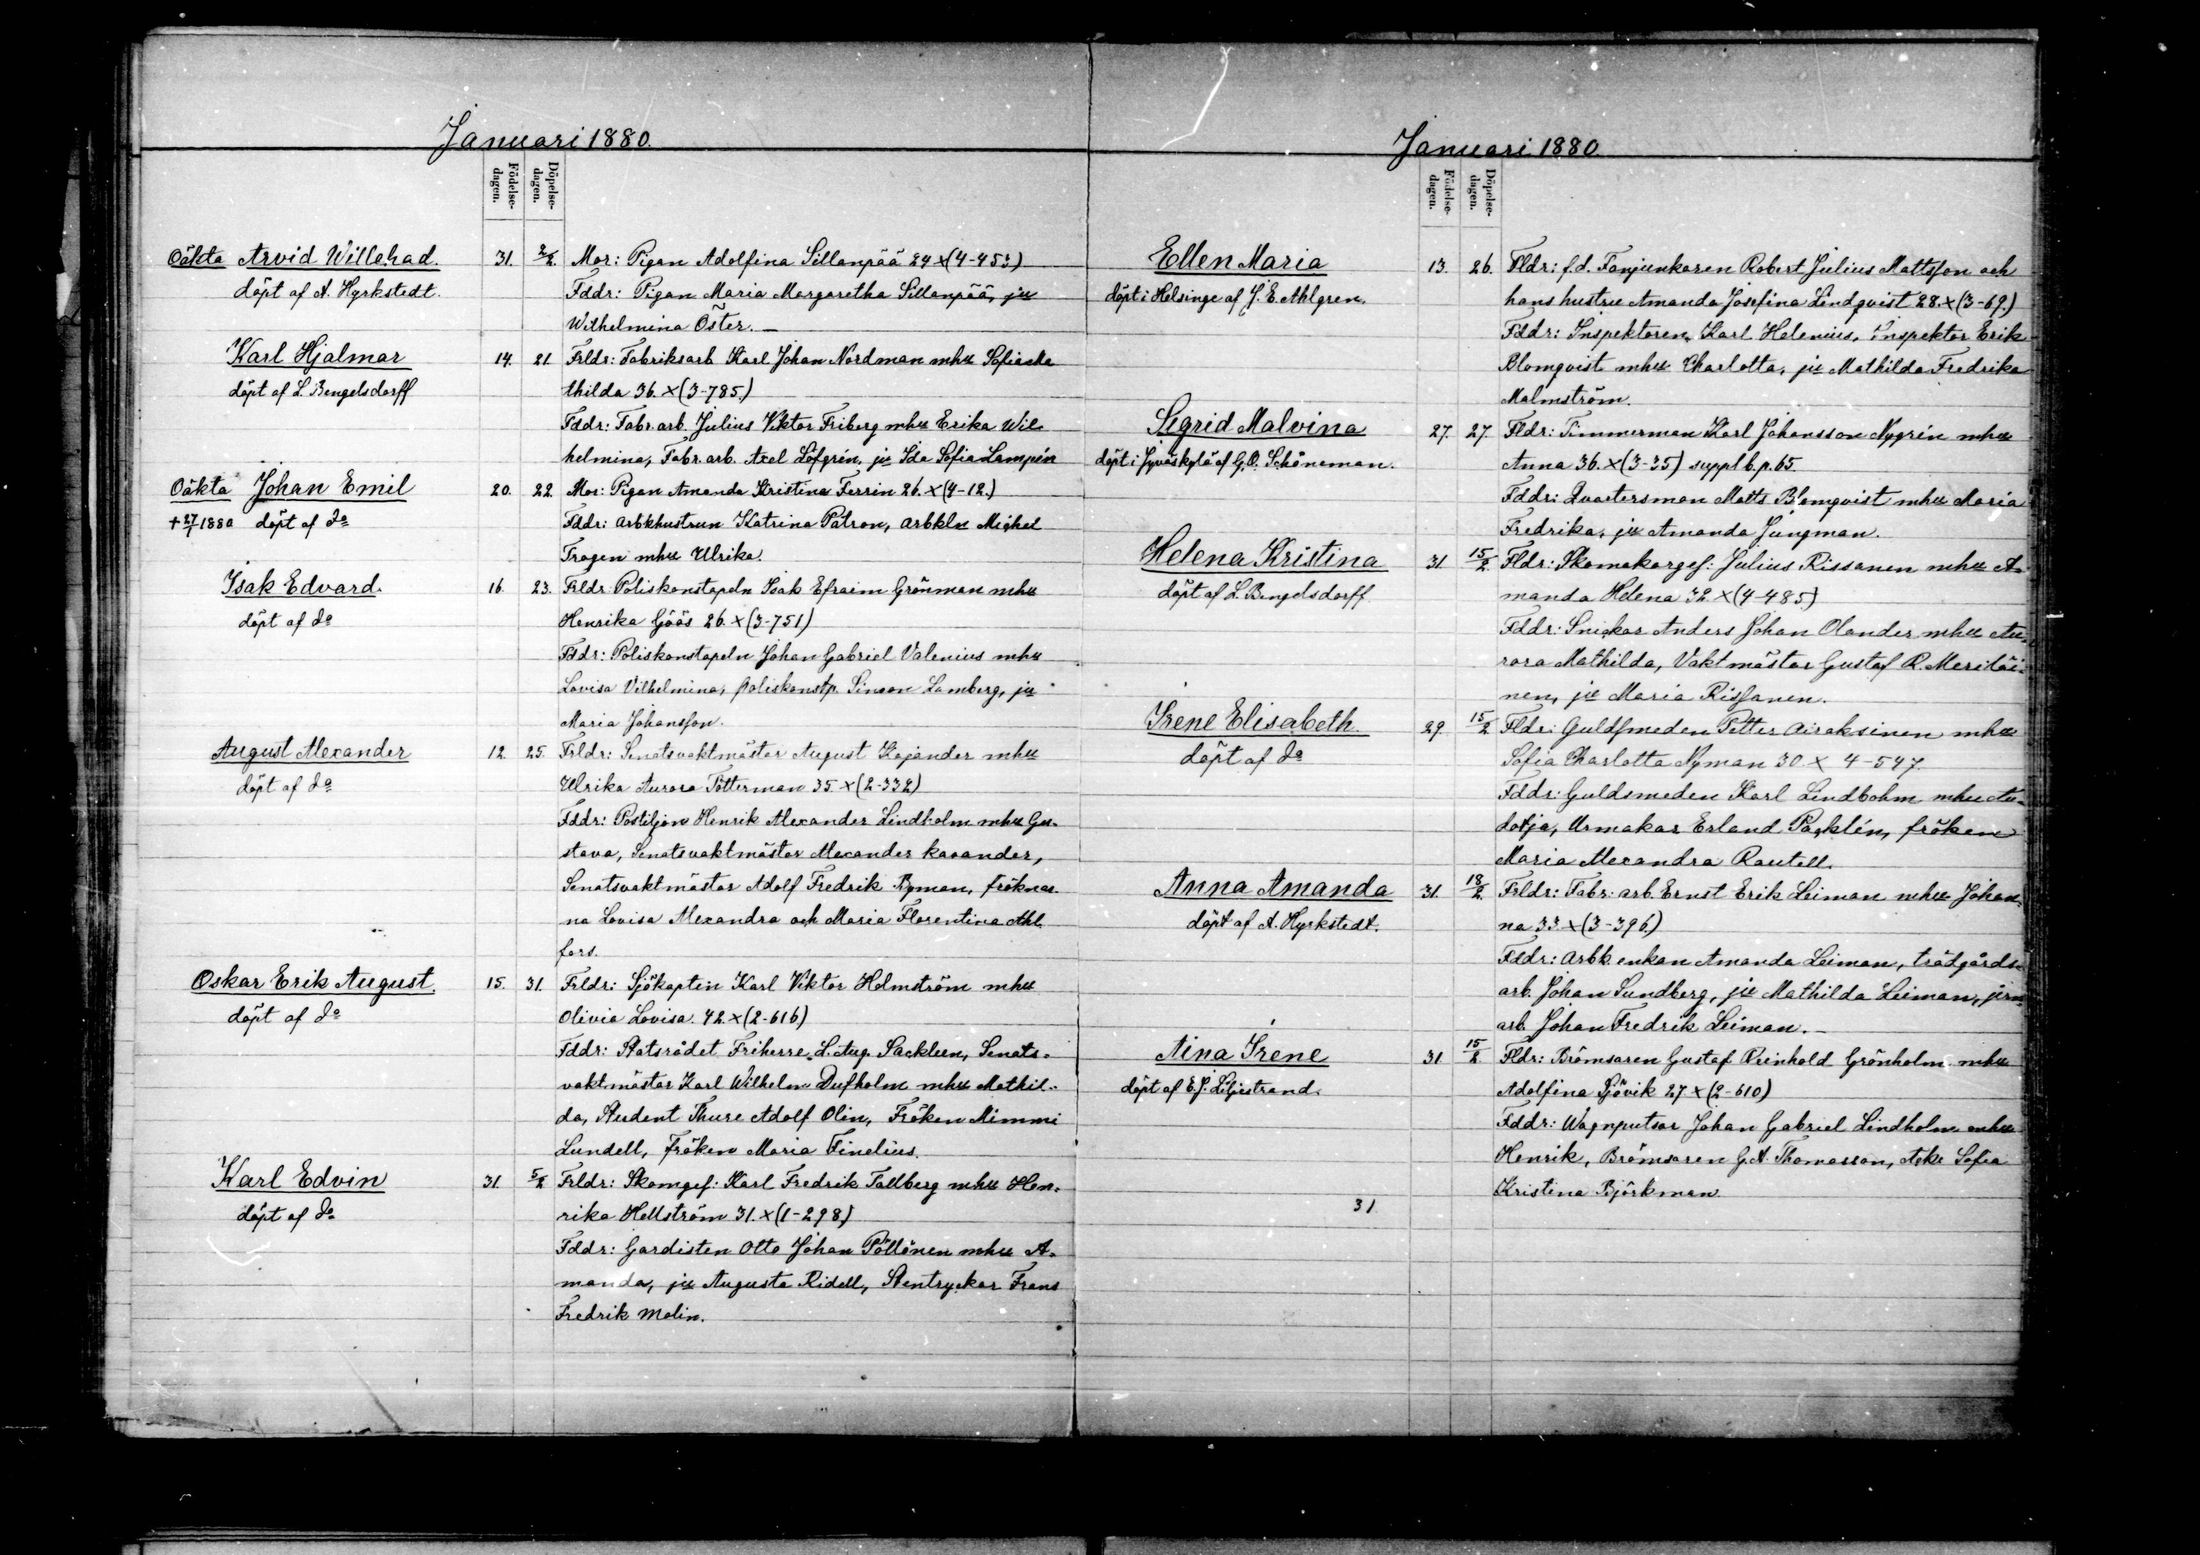 Januari 1880.
Födelse-
dagen.
Döpelse-
dagen.
Oäkta Arvid Willehad. 31. 2/2. Mor: Pigan Adolfina Sillanpää 24 x (4-453)
döpt af A. Hyrkstedt. Fddr: Pigan Maria Margaretha Sillanpää, ju
Wilhelmina Öster. —
Karl Hjalmar 14. 21. Frldr: Fabriksarb Karl Johan Nordman mhu Sofia
döpt af L. Bengelsdorff thilda 36. x (3-785.)
Fddr: Fabr. arb. Julius Viktor Friberg mhu Erika Wil-
helmina, Fabr. arb. Axel Löfgrén, ju Ida Sofia Lampén
Oäkta Johan Emil 20. 22. Mor: Pigan Amanda Kristina Ferrin 26. x (4-12.)
+ 27/1 1880 döpt af do Fddr: Arbkhustrun Katrina Patron, arbkln Michel
Tragen mhu Ulrika.
Isak Edvard. 16. 23. Frldr Poliskonstapeln Isak Efraim Grönman mhu
döpt af do Henrika Göös 26. x (3-751)
Fddr: Poliskonstapeln Johan Gabriel Valenius mhu
Lovisa Vilhelmina, poliskonstp. Simon Lamberg, ju
Maria Johansson.
August Alexander 12. 25. Frldr: Senatsvaktmästar August Kajander mhu
döpt af do Ulrika Aurora Pötterman 35 x (2-332)
Fddr: Postiljon Henrik Alexander Lindholm mhu Gu-
stava, Senatsvaktmästar Alexander kavander,
Senatsvaktmästar Adolf Fredrik Nyman, fröknar-
na Lovisa Alexandra och Maria Florentina Ahl
fors.
Oskar Erik August. 15. 31. Frldr: Sjökapten Karl Viktor Holmström mhu
döpt af do Olivia Lovisa. 42. x (2-616)
Fddr: Statsrådet Friherre L. Aug. Sackleen, Senats-
vaktmästar Karl Wilhelm Dufholm mhu Mathil-
da, Student Thure Adolf Olin, Fröken Mimmi
Lundell, fröken Maria Finelius.
Karl Edvin 31. 5/2 Frldr: Skomges: Karl Fredrik Tallberg mhu Hen-
döpt af do rika Hellström 31. x (1-298)
Fddr: Gardisten Otto Johan Pöllönen mhu A-
manda, ju Augusta Ridell, Stentryckar Frans
Fredrik Molin.
Januari 1880
Födelse-
dagen.
Döpelse-
dagen.
Ellen Maria 13. 26. Fldr: f.d. Fanjunkaren Robert Julius Mattsson och
döpt i Helsinge af J. E. Ahlgren. hans hustru Amanda Josefina Lindqvist 28. x (3-69.)
Fddr: Inspektoren Karl Helenius, Inspektor Erik
Blomqvist mhu Charlotta, ju Mathilda Fredrika
Malmström.
Sigrid Malvina 27. 27. Fldr: Timmerman Karl Johansson Nygrén mhu
döpt i Jyväskylä af G. O. Schöneman. Anna 36. x (3-35) suppl b. p. 65.
Fddr: Quartersman Matts Blomqvist mhu Maria
Fredrika, ju Amanda Jungman.
Helena Kristina 31 15/2. Fldr: Skomakarges: Julius Rissanen mhu A-
döpt af L. Bengelsdorff manda Helena 32. x (4-485)
Fddr: Snickar Anders Johan Olander mhu Au-
rora Mathilda, Vaktmästar Gustaf R. Meritäi-
nen, ju Maria Rissanen.
Irene Elisabeth. 29 15/2 Fldr: Guldsmeden Petter Airaksinen mhu
döpt af do Sofia Charlotta Nyman 30 x 4-547.
Fddr: Guldsmeden Karl Lindbohm mhu Au-
dotja, Urmakar Erland Packlén, fröken
Maria Alexandra Rautell.
Anna Amanda 31. 18/2. Frldr: Fabr. arb. Ernst Erik Leiman mhu Johan-
döpt af A. Hyrkstedt. na 33 x (3-396)
Fddr: Arbk enkan Amanda Leiman, trädgårds-
arb. Johan Sundberg, ju Mathilda Leiman, jern-
arb. Johan Fredrik Leiman. —
Aina Irene 31 15/2 Fldr: Bromsaren Gustaf Reinhold Grönholm mhu
döpt af E. J. Liljestrand. Adolfina Sjövik 27 x (2-610)
Fddr: Wagnputsar Johan Gabriel Lindholm mhu
Henrik, Bromsaren G. A. Thomasson, Sofia
Kristina Björkman.
31